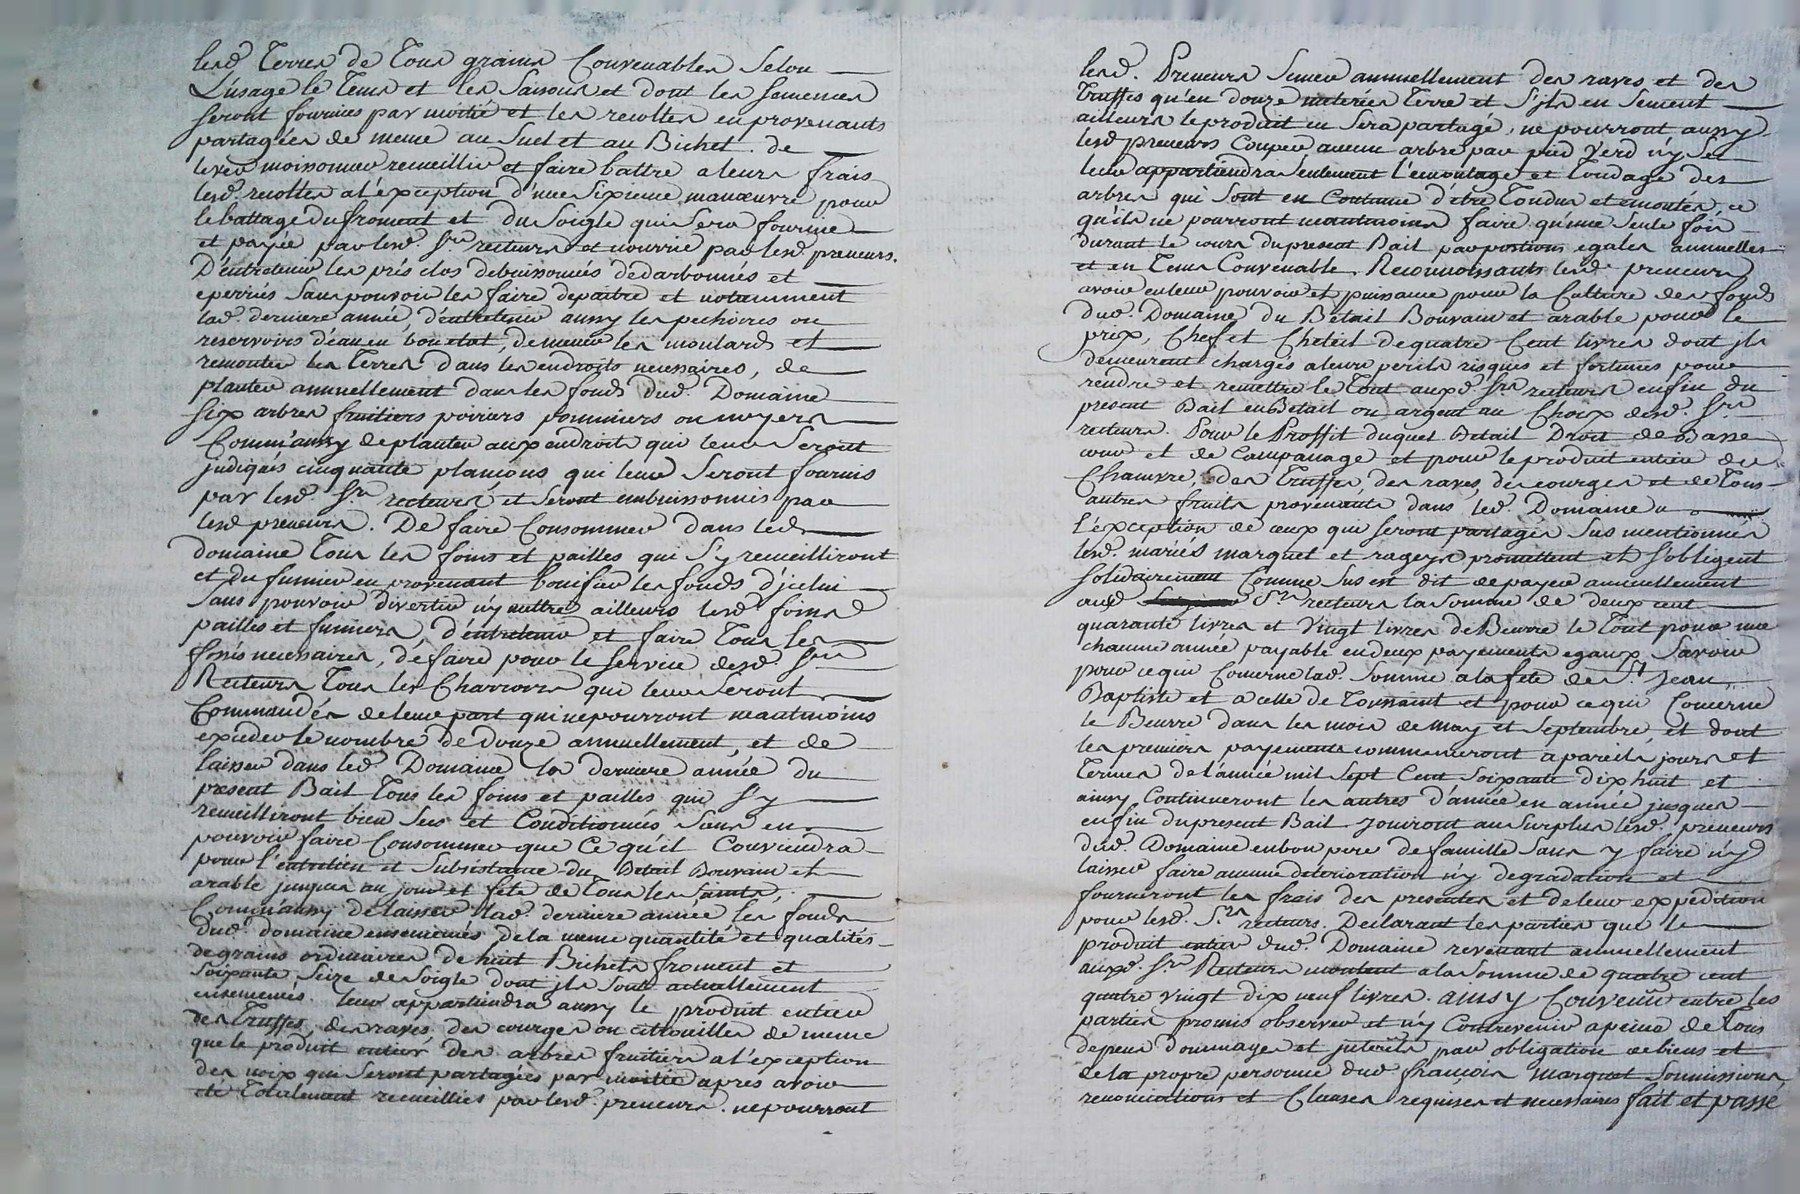 lesd. Terres de Tous grains Convenables Selon
L'usage le Tems et les Saisons et dont les semences
seront fournies par moitié et les recoltes en provenants
partagées de meme au Suel et au Bichet. de
lever moissonner recueillir et faire battre a leurs frais
lesd. recoltes a l'éxception d'une Sixieme manœuvre pour
le battage du froment et du Soigle qui Sera fournie
et payée par lesd. Srs recteurs et nourrie par lesd. preneurs.
D'entretenir les prés clos debuissonnés dedarbonnés et
eperriés Sans pouvoir les faire depaitre et notamment
lad. derniere année, d'entretenir aussy les pechoires ou
reservoirs d'eau en bon etat, de mener les moulards et
remonter les Terres dans les endroits necessaires, de
planter annuellement dans les fonds dud. Domaine
six arbres fruitiers poiriers pommiers ou noyers
Comm'aussy de planter aux endroits qui leur Seront
jndiqués cinquante plançons qui leur Seront fournis
par lesd. Srs recteurs et seront embuissonnés par
lesd preneurs. De faire Consommer dans led
domaine Tous les foins et pailles qui S'y recueilliront
et du fumier en provenant bonifier les fonds d'jcelui
Sans pouvoir divertir n'y mettre ailleurs lesd foins
pailles et fumiers, d'entretenir et faire Tous les
fossés necessaires, de faire pour le Service desd. Srs
Recteurs Tous les Charrois qui leur Seront
Commandés de leur part qui ne pourront neantmoins
exceder le nombre de Douze annuellement, et de
laisser dans led. Domaine la derniere année du
present Bail Tous les foins et pailles qui S'y
recueilliront bien Secs et Conditionnés Sans en
pouvoir faire Consommer que Ce qu'il Conviendra
pour l'entretien et Subsistance du Betail Bouvain et
arable jusques au jour et fete de Tous les Saints,
Comm'aussy de laisser lad. derniere année les fonds
dud. domaine ensemencés de la meme quantité et qualités
de grains ordinaires de huit Bichets froment et
soixante Seize de Soigle dont jls Sont actuellement
ensemencés. leur appartiendra aussy le produit entier
des truffes, des raves des courges ou citrouilles de meme
que le produit entier des arbres fruitiers a l'exception
des noix qui Seront partagées par moitié apres avoir
eté Totalement recueillies par lesd. preneurs. ne pourront
lesd. Preneurs Semer annuellement des raves et des
Truffes qu'en douze meterées Terre et S'jls en Sement
ailleurs le produit en Sera partagé, ne pourront aussy
lesd preneurs Couper aucun arbre par pied Verd n'y Sec
leur appartiendra Seulement l'emontage et Tondage des
arbres qui Sont en Coutume d'etre Tondus et emontés ce
qu'ils ne pourront neantmoins faire qu'une Seule fois
durant le cours du present Bail par portions egales annuelles
et en Tems Convenable. Reconnoissants lesd. preneurs
avoir en leur pouvoir et puissance pour la Culture des fonds
dud. Domaine du Betail Bouvain et arable pour le
prix, Chef et Cheteil de quatre Cent livres dont jls
demeurent chargés a leurs perils risques et fortunes pour
rendre et remettre le Tout auxd. Srs recteurs en fin du
present Bail en Betail ou argent au Choix desd. Srs
recteurs. Pour le Proffit duquel Betail Droit de Basse
cour et de Campanage et pour le produit entier du
Chanvre, des Truffes, des raves, des courges et de Tous
autres fruits provenants dans led. Domaine a
l'éxception de ceux qui seront partagés Sus mentionnés
lesd. mariés marquet et rageys promettent et s'obligent
solidairement Comme Sus est dit de payer annuellement
auxd Srs recteurs la Somme de deux cent
quarante livres et Vingt livres de Beurre le Tout pour une
chacune année payable en deux payements egaux Savoir
pour ce qui Concerne lad. Somme a la fete de St Jean
Baptiste et a celle de Toussaint et pour ce qui Concerne
le Beurre dans les mois de may et Septembre, et dont
les premiers payements commenceront a pareils jours et
Termes de l'année mil Sept Cent Soixante dix huit et
ainsy Continueront les autres d'année en année jusques
en fin du present Bail. Jouiront au Surplus lesd. preneurs
dud. Domaine en bon pere de famille Sans y faire n'y
laisser faire aucune deterioration n'y degradation et
fourniront les frais des presentes et de leur expedition
pour lesd. Srs recteurs. Declarant les parties que le
produit entier dud. Domaine revenant annuellement
auxd. Srs Recteurs montent a la Somme de quatre cent
quatre vingt dix neuf livres. ainsy Convenu entre les
parties promis observer et n'y Contrevenir a peine de Tous
depens dommages et jnterets par obligation de biens et
de la propre personne dud françois marquet Soumissions
renonciations et Clauses requises et necessaires fait et passé